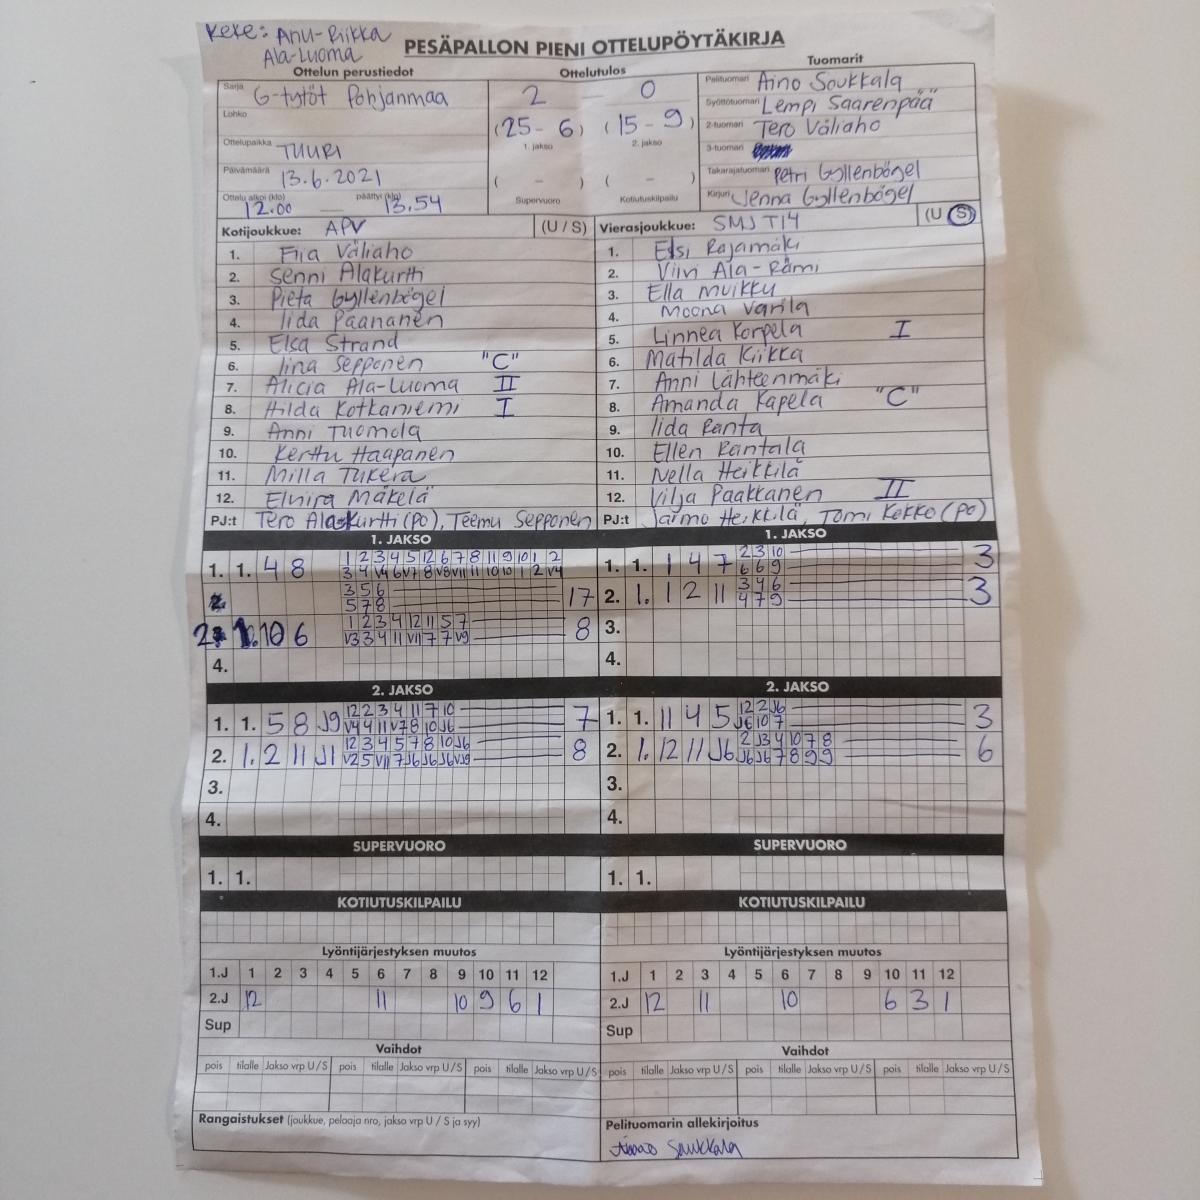 Keke: Anu-Riikka
Ala-Luoma
PESÄPALLON PIENI OTTELUPÖYTÄKIRJA
Ottelun perustiedot
Ottelutulos
Tuomarit
Sarja G-tytöt Pohjanmaa
Lohko
Ottelupaikka TUURI
Päivämäärä 13.6.2021
Ottelu alkoi (klo) 12.00 päättyi (klo) 13.54
2 0
(25 - 6) (15 - 9)
1. jakso 2. jakso
( - ) ( - )
Supervuoro Kotiutuskilpailu
Pelituomari Aino Soukkala
Syöttötuomari Lempi Saarenpää
2-tuomari Tero Väliaho
3-tuomari
Takarajatuomari Petri Gyllenbögel
Kirjuri Jenna Gyllenbögel
Kotijoukkue: APV (U / S)
1. Fiia Väliaho
2. Senni Alakurtti
3. Pieta Gyllenbögel
4. Iida Paananen
5. Elsa Strand
6. Iina Sepponen "C"
7. Alicia Ala-Luoma II
8. Hilda Kotkaniemi I
9. Anni Tuomola
10. Kerttu Haapanen
11. Milla Tukera
12. Elvira Mäkelä
PJ:t Tero Alakurtti (PO), Teemu Sepponen
Vierasjoukkue: SMJ T14 (U S)
1. Elsi Rajamäki
2. Viivi Ala-Rämi
3. Ella Muikku
4. Moona Varila
5. Linnea Korpela I
6. Matilda Kiikka
7. Anni Lähteenmäki
8. Amanda Kapela "C"
9. Iida Ranta
10. Ellen Rantala
11. Nella Heikkilä
12. Vilja Paakkanen II
PJ:t Jarmo Heikkilä, Tomi Kokko (PO)
1. JAKSO
1. 1. 4 8 1 2 3 4 5 12 6 7 8 11 9 10 1 2
3 4 V4 6 V7 8 V8 V11 11 10 10 1 2 V4
3 5 6
5 7 8 17
2. 1. 10 6 1 2 3 4 12 11 5 7
V3 3 4 11 V11 7 7 V9 8
4.
1. JAKSO
1. 1. 1 4 7 2 3 10
6 6 9 3
2. 1. 1 2 11 3 4 6
4 7 9 3
3.
4.
2. JAKSO
1. 1. 5 8 J9 12 2 3 4 11 7 10
V4 4 11 V7 8 10 J6 7
2. 1. 2 11 J1 12 3 4 5 7 8 10 J6
V2 5 V11 7 J6 J6 J6 V J9 8
3.
4.
2. JAKSO
1. 1. 11 4 5 12 2 J6
J6 10 7 3
2. 1. 12 11 J6 2 J3 4 10 7 8
J6 J6 7 8 9 9 6
3.
4.
SUPERVUORO
1. 1.
SUPERVUORO
1. 1.
KOTIUTUSKILPAILU
KOTIUTUSKILPAILU
Lyöntijärjestyksen muutos
1.J 1 2 3 4 5 6 7 8 9 10 11 12
2.J 12 11 10 9 6 1
Sup
Lyöntijärjestyksen muutos
1.J 1 2 3 4 5 6 7 8 9 10 11 12
2.J 12 11 10 6 3 1
Sup
Vaihdot
pois tilalle Jakso vrp U / S pois tilalle Jakso vrp U / S pois tilalle Jakso vrp U / S
Vaihdot
pois tilalle Jakso vrp U / S pois tilalle Jakso vrp U / S pois tilalle Jakso vrp U / S
Rangaistukset (joukkue, pelaaja nro, jakso vrp U / S ja syy)
Pelituomarin allekirjoitus
Soukkala